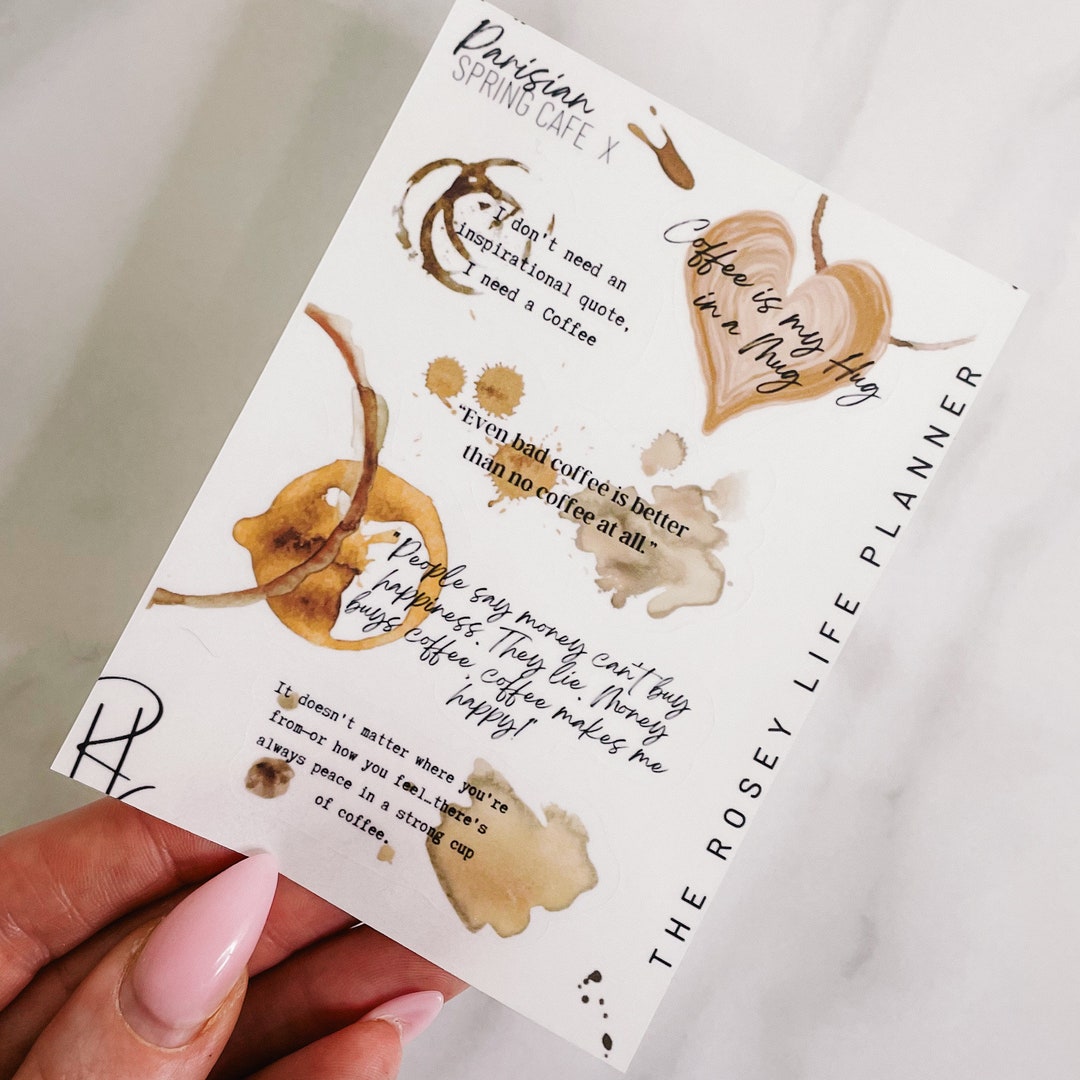 Parisian
SPRING CAFE X
I don't need an
inspirational quote,
I need a Coffee
Coffee is my Hug
in a Mug
"Even bad coffee is better
than no coffee at all."
"People say money can't buy
happiness. They lie. Money
buys coffee, coffee makes me
happy!"
It doesn't matter where you're
from—or how you feel…there's
always peace in a strong cup
of coffee.
THE ROSEY LIFE PLANNER